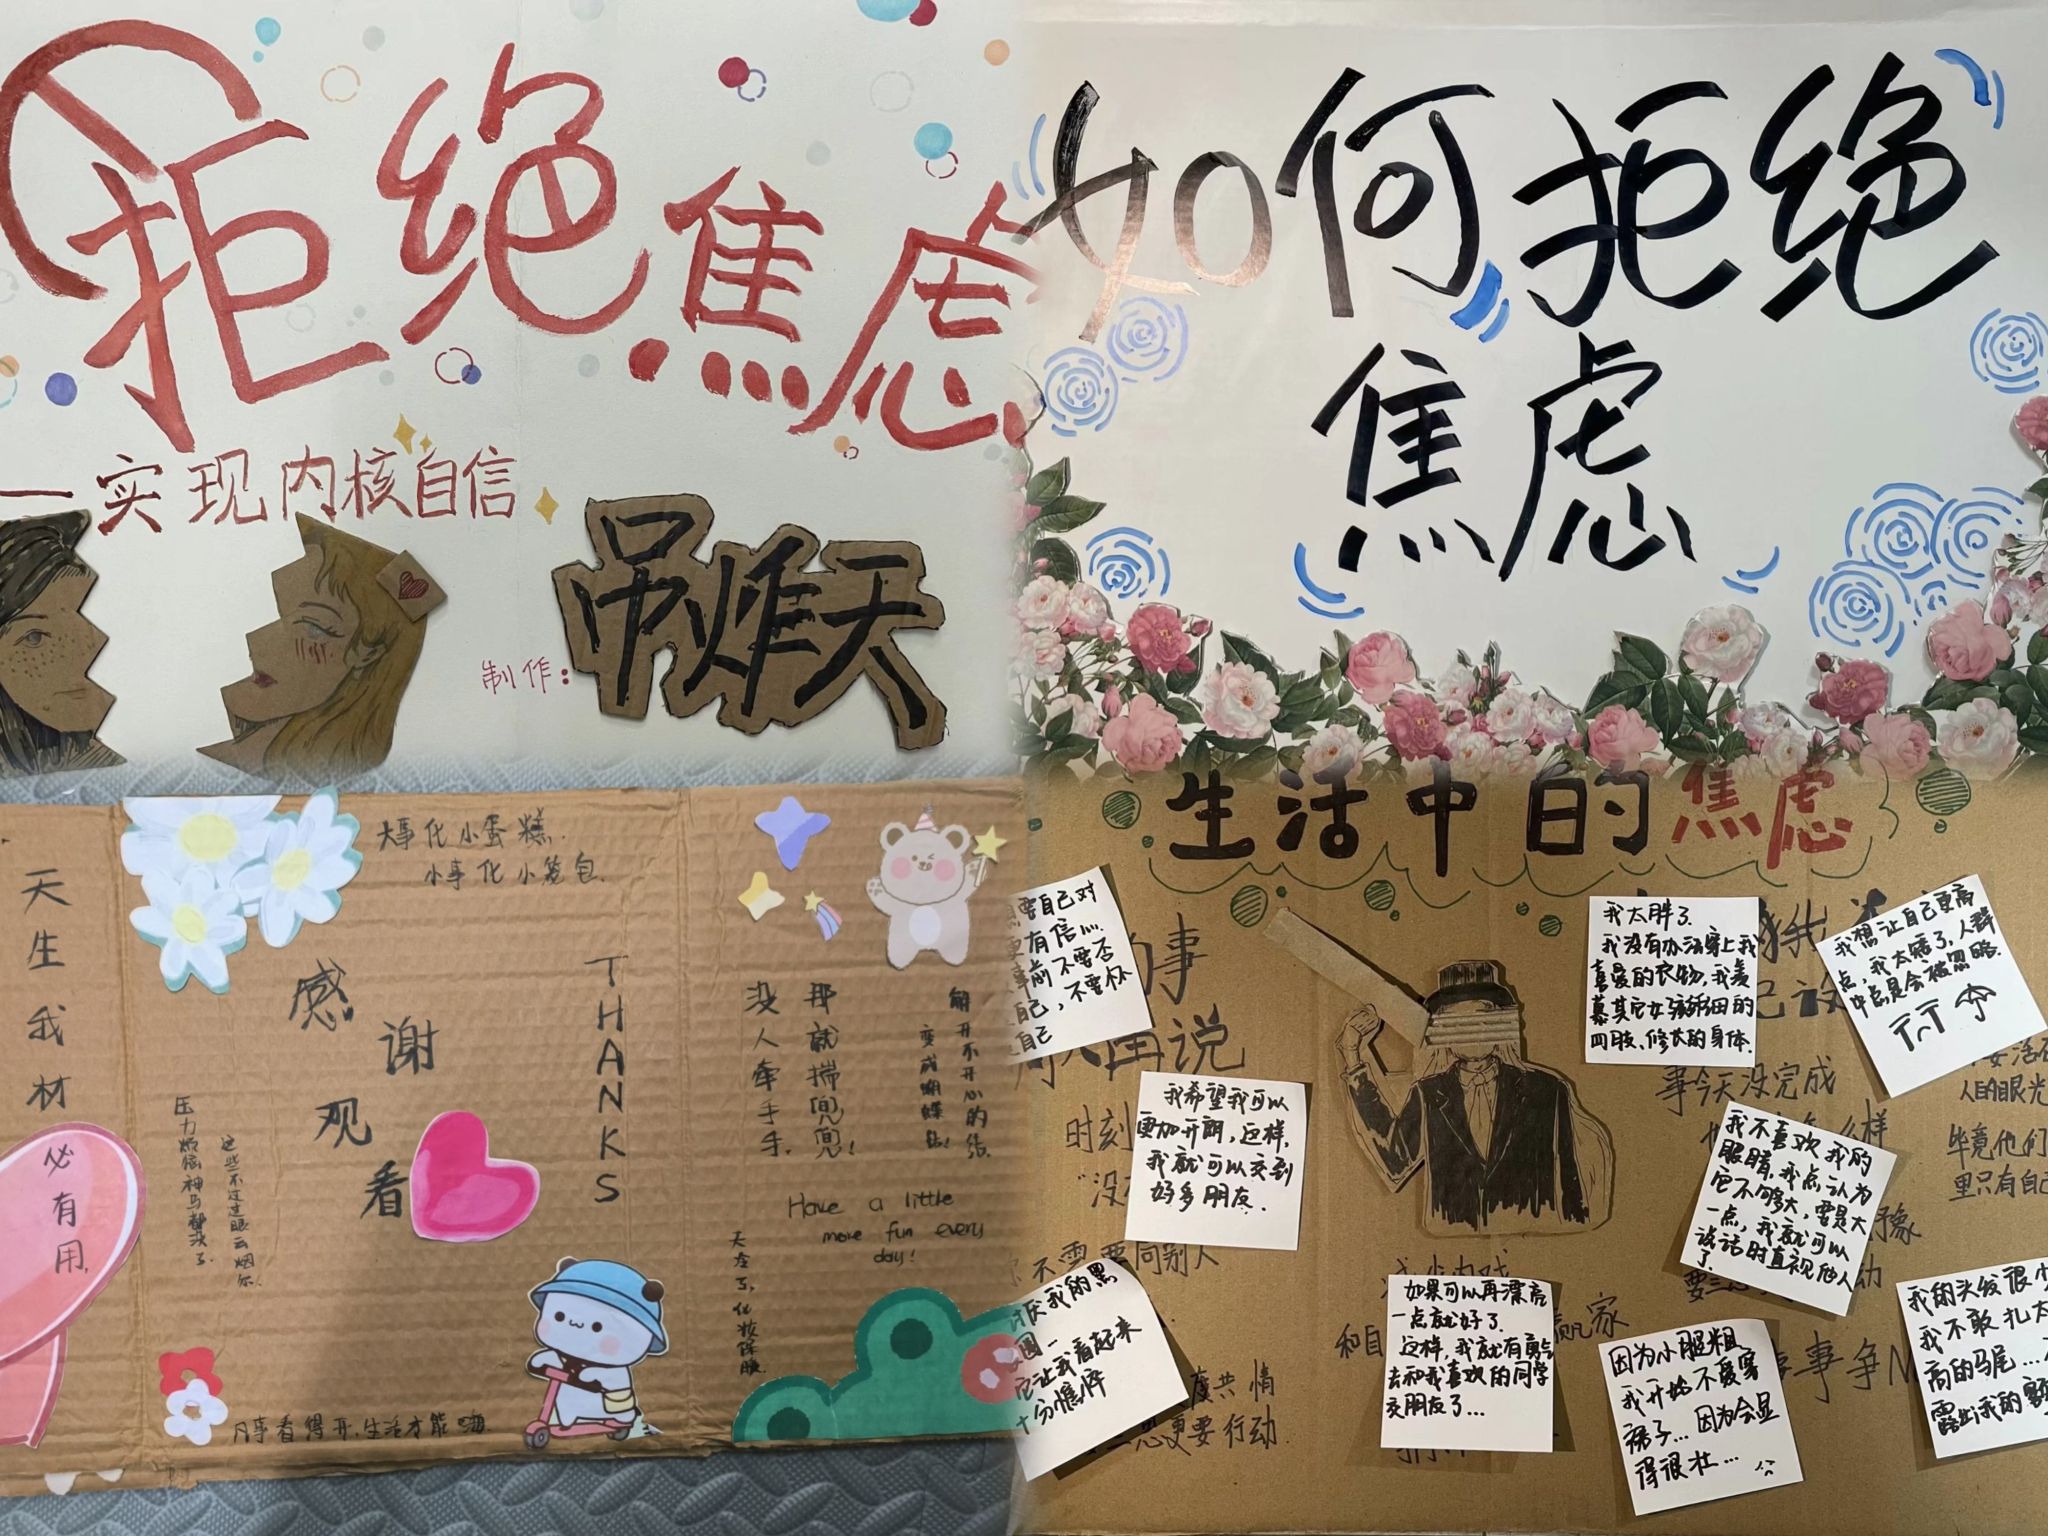 拒绝焦虑
一实现内核自信
制作：
吊炸天
如何拒绝
焦虑
天生我材
必有用
大事化小蛋糕.
小事化小笼包.
感谢观看
THANKS
压力烦恼神马都没了.
这些不过过眼云烟尔.
凡事看得开.生活才能嗨.
没人牵手手.
那就揣兜兜!
解开不开心的结.
变成蝴蝶结!
Have a little
more fun every
day!
天冷了,化妆保暖.
生活中的焦虑
要自己对
有信心.
事前不要否
自己,不要怀
自己
事
再说
时刻
我希望我可以
更加开朗,这样,
我就可以交到
好多朋友.
不需要同别人
讨厌我的黑
圈一
它让我看起来
十分憔悴
度共情
更要行动.
我太胖了.
我没有办法穿上我
喜爱的衣物,我羡
慕其它女孩纤细的
四肢、修长的身体.
我想让自己更高
点,我太矮了,人群
中总是会被忽略.
T^T
事今天没完成
么样
人的眼光
毕竟他们
里只有自己
我不喜欢我的
眼睛,我总认为
它不够大,要是大
一点,我就可以
说话时直视他人
了.
如果可以再漂亮
一点就好了.
这样,我就有勇气
去和我喜欢的同学
交朋友了...
和自
赢家
因为小腿粗
我开始不爱穿
裙子...因为会显
得很壮...
事争
我的头发很少
我不敢扎太
高的马尾...
露出我的额